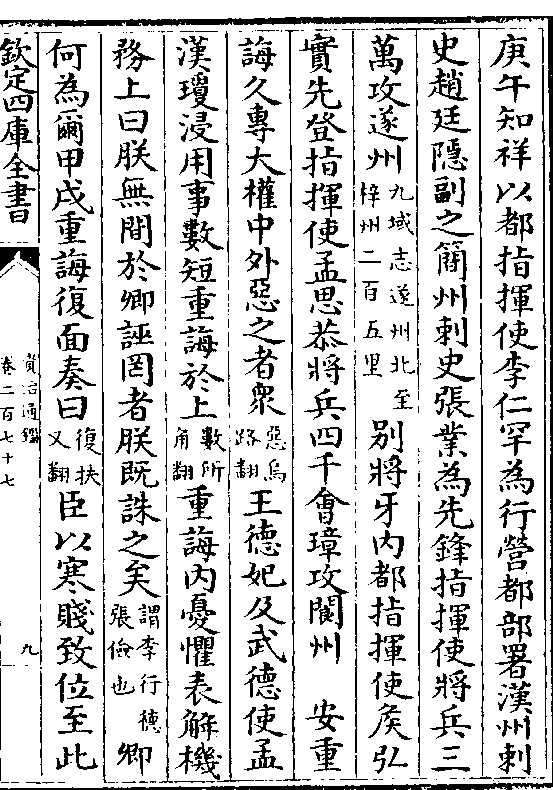 庚午知祥以都指揮使李仁罕為行營都部署漢州刺
史趙廷隱副之簡州刺史張業為先鋒指揮使將兵三
萬攻遂州九域志遂州北至梓州二百五里別將牙內都指揮使侯弘
實先登指揮使孟思恭將兵四千會璋攻閬州　安重
誨久專大權中外惡之者衆惡烏路翻王德妃及武德使孟
漢瓊浸用事數短重誨於上數所角翻重誨內憂懼表解機
務上曰朕無間於卿誣罔者朕既誅之矣謂李行德張儉也卿
何為爾甲戌重誨復面奏曰復扶又翻臣以寒賤致位至此
欽定四庫全書
資治通鑑
卷二百七十七
九